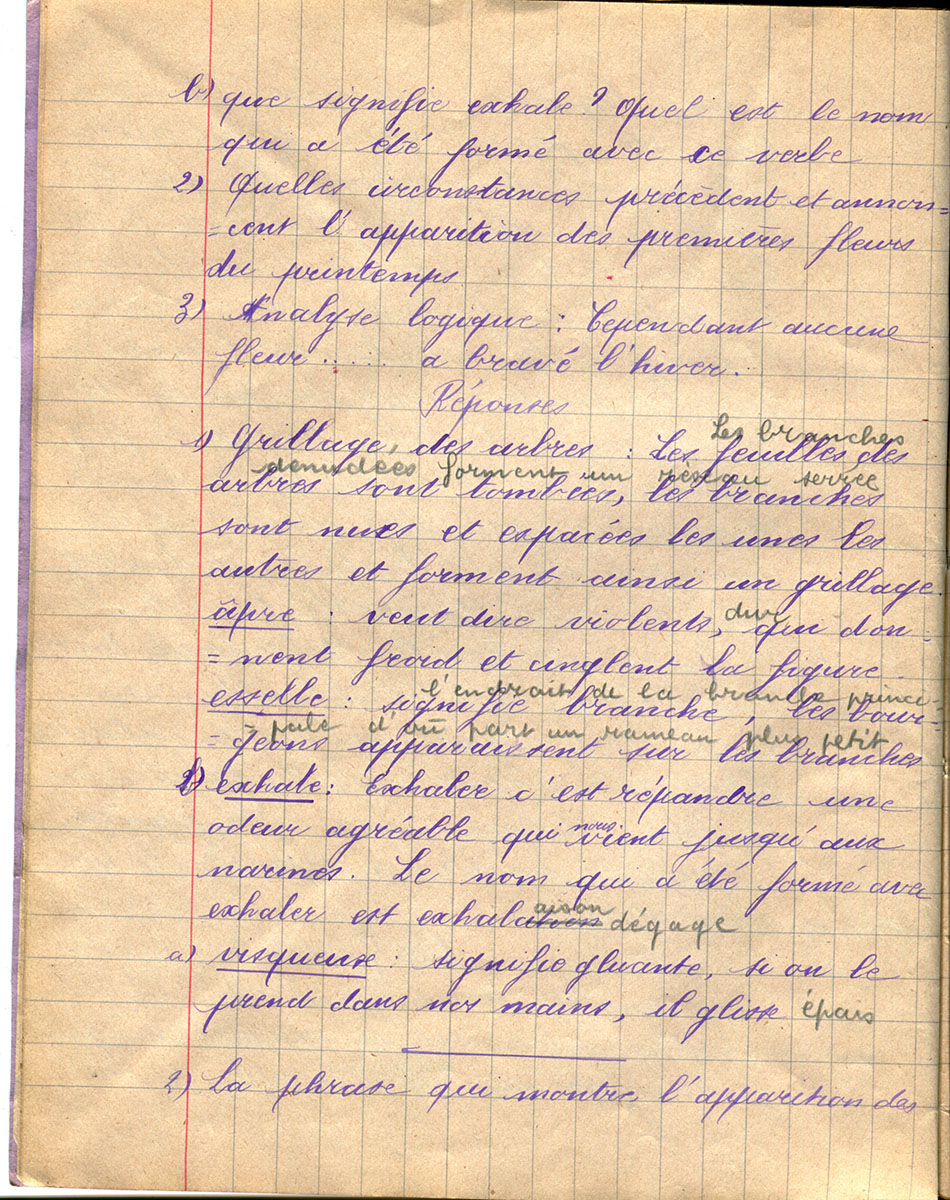 b) que signifie exhale? Quel est le nom
qui a été formé avec ce verbe
2) Quelles circonstances précèdent et annon=
=cent l'apparition des premières fleurs
du printemps
3) Analyse logique : Cependant aucune
fleur ...... a bravé l'hiver.
Réponses
1) Grillage, des arbres : Les feuilles des
Les branches
dénudées forment un réseau serrée
arbres sont tombées, les branches
sont nues et espacées les unes les
autres et forment ainsi un grillage.
âpre : veut dire violents, dur qui don=
=nent froid et cinglent la figure.
l'endroit de la branche princi=
esselle : signifie branche, les bour=
=pale d'où part un rameau plus petit
=geons apparaissent sur les branches
b) exhale : Exhaler c'est répandre une
odeur agréable qui nous vient jusqu'aux
narines. Le nom qui a été formé avec
exhaler est exhalation aison dégage
a) visqueuse : signifie gluante, si on le
prend dans nos mains, il glisse épais
2) La phrase qui montre l'apparition des